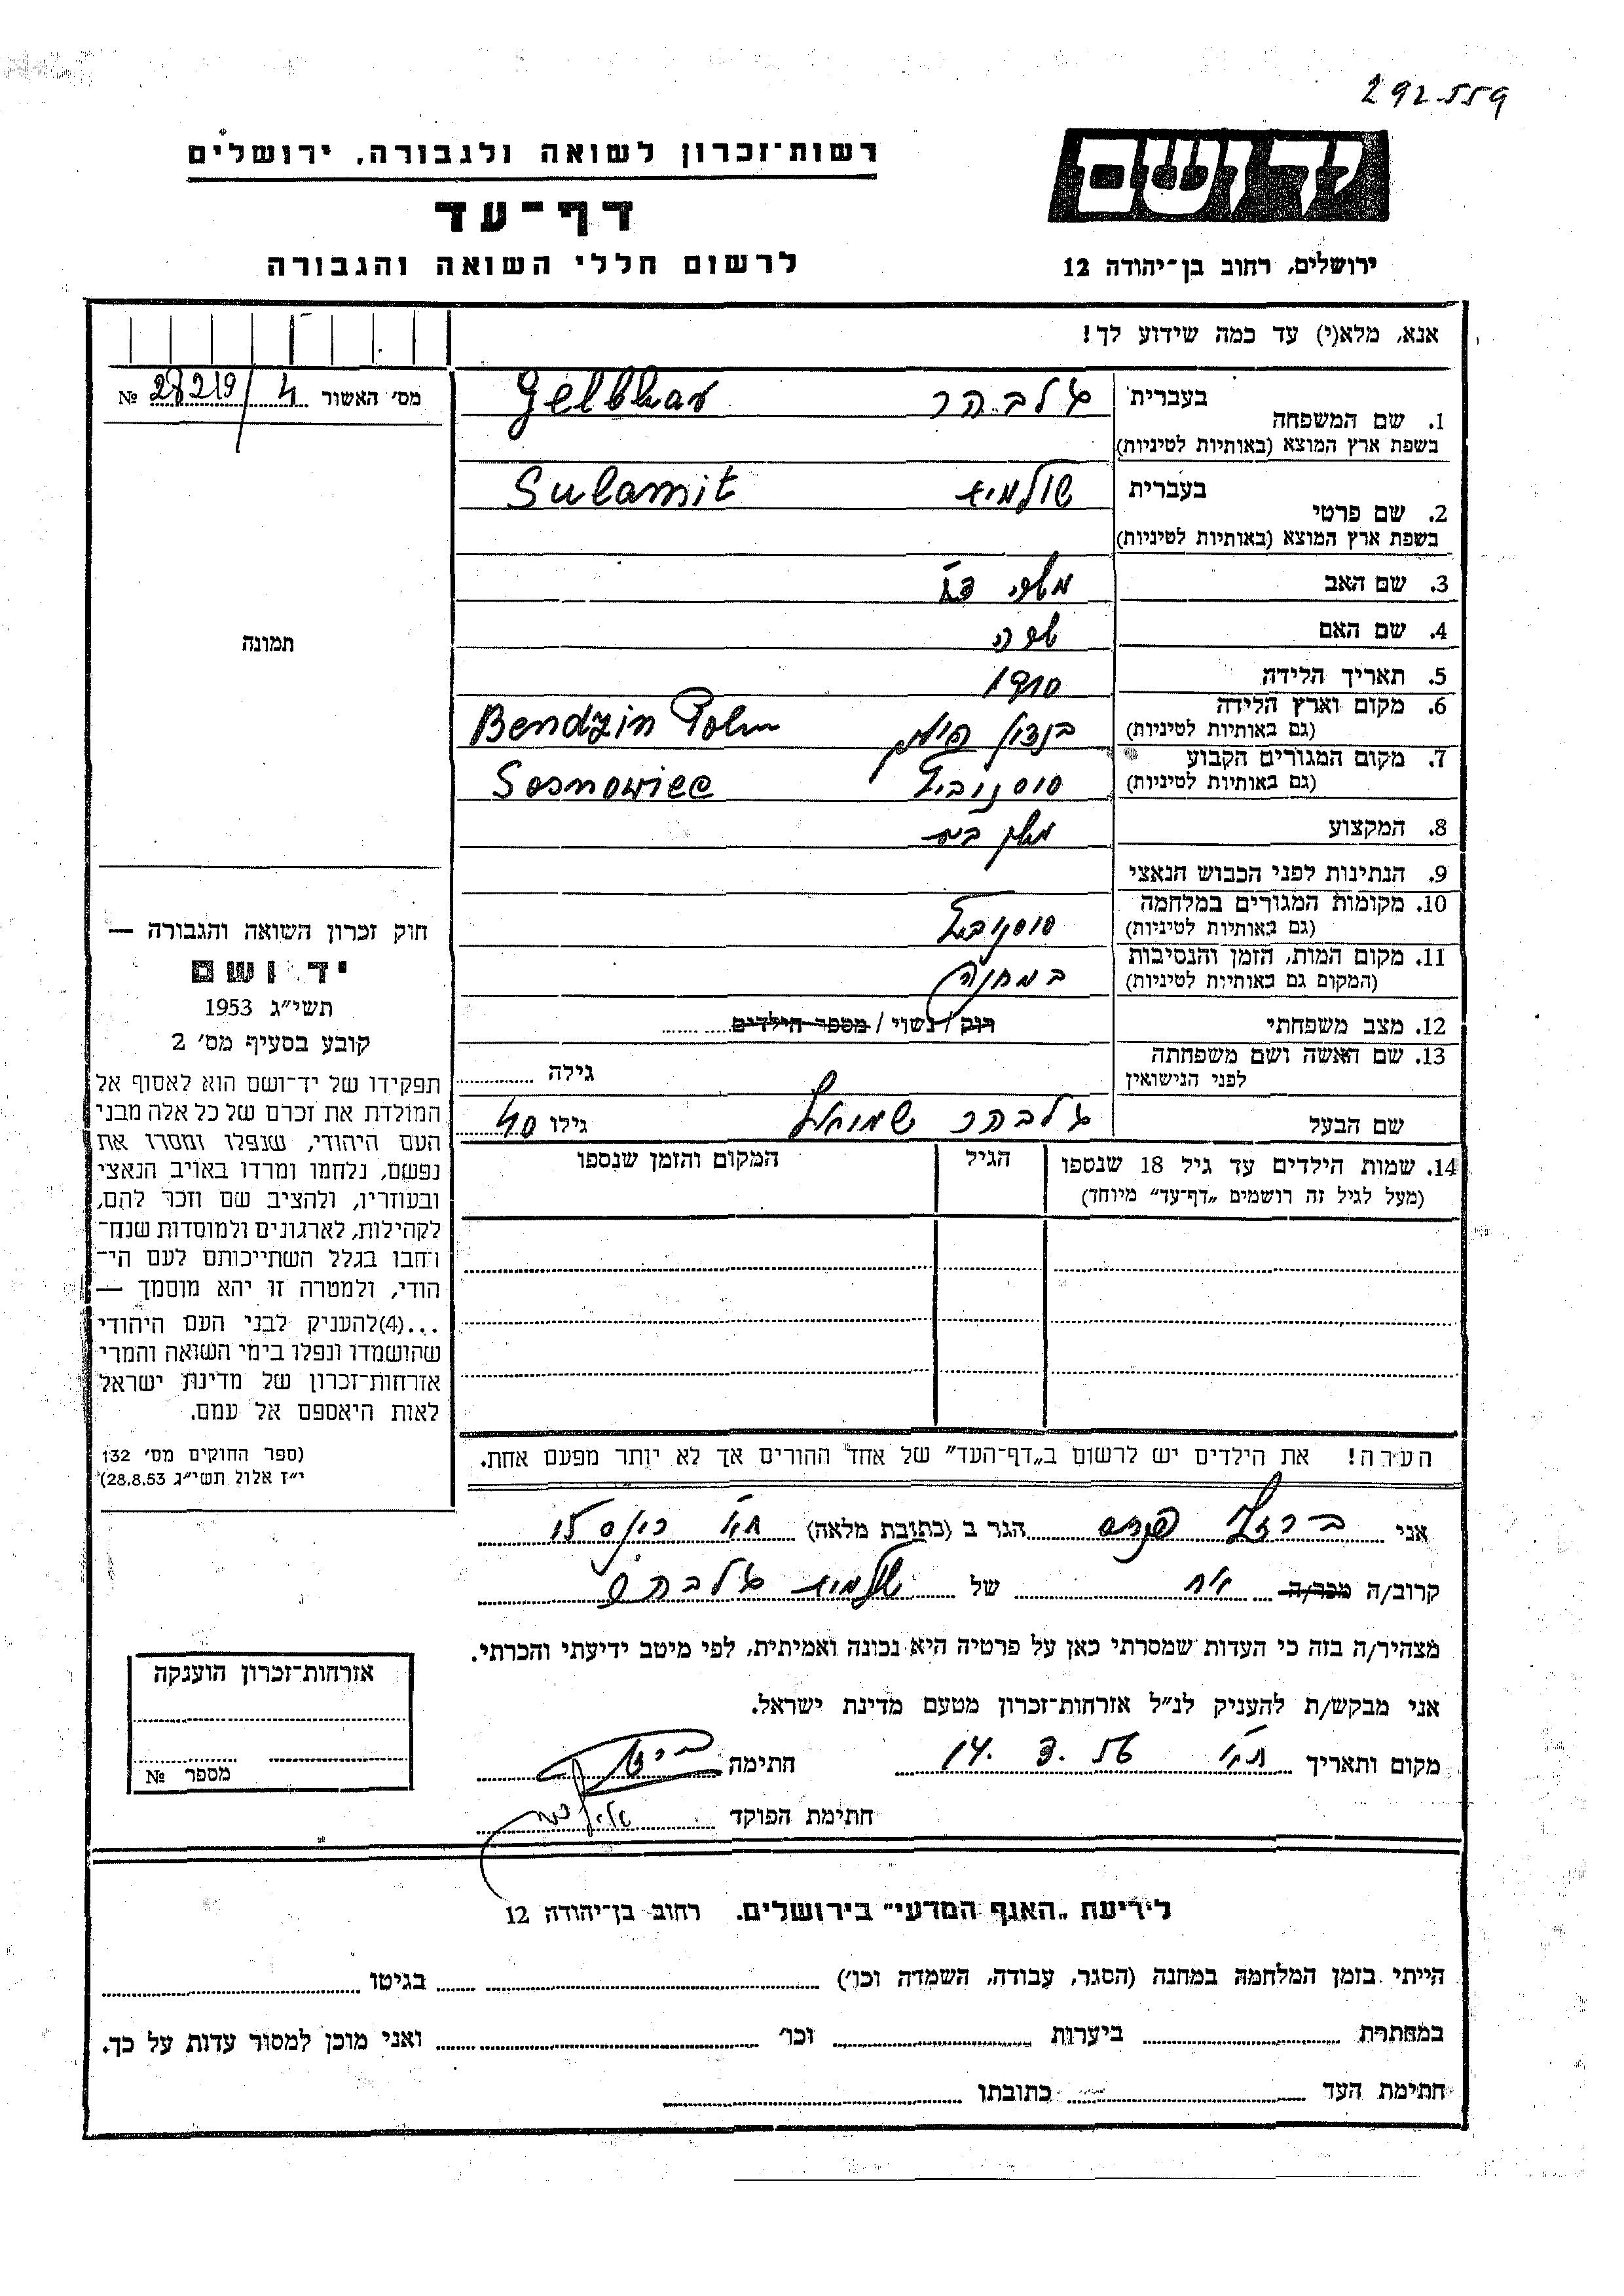 292559
רשות־זכרון לשואה ולגבורה, ירושלים
יד ושם
דף־עד
לרשום חללי השואה והגבורה
ירושלים, רחוב בן־יהודה 12
אנא, מלא(י) עד כמה שידוע לך!
מס׳ האשור 4/28219 №
1. שם המשפחה בעברית גלבהר Gelbhar
בשפת ארץ המוצא (באותיות לטיניות)
2. שם פרטי בעברית שולמית Sulamit
בשפת ארץ המוצא (באותיות לטיניות)
3. שם האב
4. שם האם שרה
5. תאריך הלידה 1910
6. מקום וארץ הלידה בנדזין פולין Bendzin
(גם באותיות לטיניות)
7. מקום המגורים הקבוע סוסנוביץ Sosnowiec
(גם באותיות לטיניות)
8. המקצוע
9. הנתינות לפני הכבוש הנאצי
10. מקומות המגורים במלחמה סוסנוביץ
(גם באותיות לטיניות)
11. מקום המות, הזמן והנסיבות במחנה
(המקום גם באותיות לטיניות)
12. מצב משפחתי רוק / נשוי / מספר הילדים
13. שם האשה ושם משפחתה
לפני הנישואין גילה
שם הבעל גלבהר שמואל גילו 40
14. שמות הילדים עד גיל 18 שנספו הגיל המקום והזמן שנספו
(מעל לגיל זה רושמים „דף־עד” מיוחד)
הערה! את הילדים יש לרשום ב„דף־העד” של אחד ההורים אך לא יותר מפעם אחת.
תמונה
חוק זכרון השואה והגבורה —
יד ושם
תשי״ג 1953
קובע בסעיף מס׳ 2
תפקידו של יד־ושם הוא לאסוף אל
המולדת את זכרם של כל אלה מבני
העם היהודי, שנפלו ומסרו את
נפשם, נלחמו ומרדו באויב הנאצי
ובעוזריו, ולהציב שם וזכר להם,
לקהילות, לארגונים ולמוסדות שנח־
רחבו בגלל השתייכותם לעם הי־
הודי, ולמטרה זו יהא מוסמך —
...(4)להעניק לבני העם היהודי
שהושמדו ונפלו בימי השואה והמרי
אזרחות־זכרון של מדינת ישראל
לאות היאספם אל עמם.
(ספר החוקים מס׳ 132
י״ז אלול תשי״ג 28.8.53)
אני הגר ב (כתובת מלאה) ת״א
קרוב/ה מכר/ה אח של שולמית גלבהר
מצהיר/ה בזה כי העדות שמסרתי כאן על פרטיה היא נכונה ואמיתית, לפי מיטב ידיעתי והכרתי.
אני מבקש/ת להעניק לנ״ל אזרחות־זכרון מטעם מדינת ישראל.
מקום ותאריך ת״א 14. 3. 56 חתימה
חתימת הפוקד
אזרחות־זכרון הוענקה
מספר №
לידיעת „האגף המדעי” בירושלים. רחוב בן־יהודה 12
הייתי בזמן המלחמה במחנה (הסגר, עבודה, השמדה וכו׳) בגיטו
במחתרת ביערות וכו׳ ואני מוכן למסור עדות על כך.
חתימת העד כתובתו